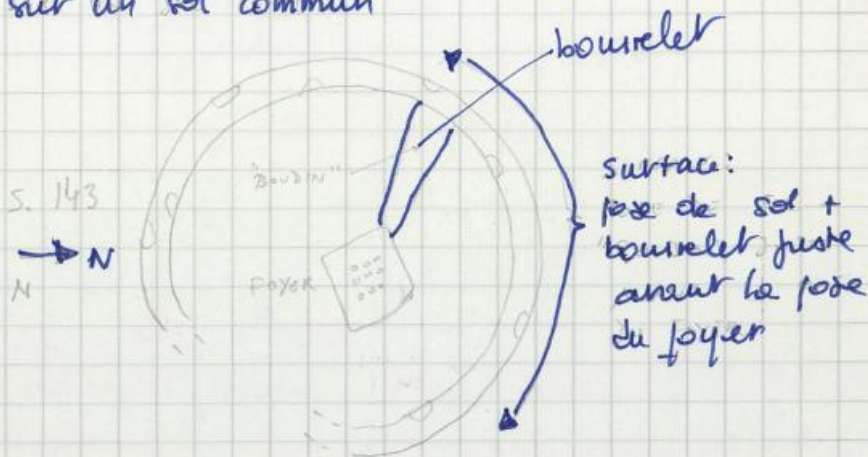 sur un sol commun
bourrelet
"BOUDIN"
S. 143
N
N
FOYER
surface:
pose de sol +
bourrelet juste
avant la pose
du foyer